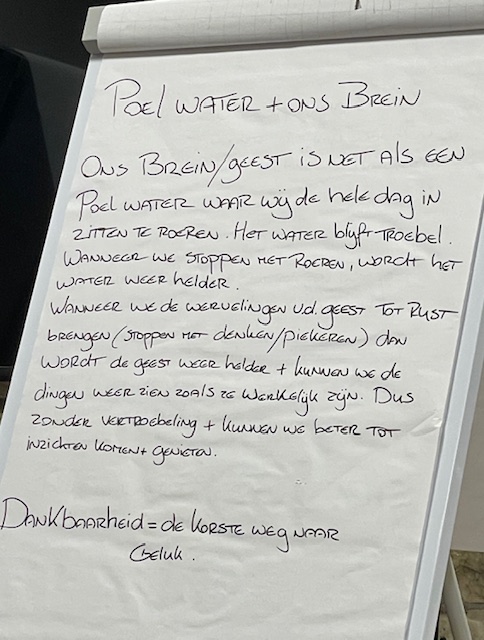 Poel water + ons Brein
Ons Brein/geest is net als een
Poel water waar wij de hele dag in
zitten te roeren. Het water blijft troebel.
Wanneer we stoppen met roeren, wordt het
water weer helder.
Wanneer we de wervelingen v.d. geest tot rust
brengen (stoppen met denken/piekeren) dan
wordt de geest weer helder + kunnen we de
dingen weer zien zoals ze werkelijk zijn. Dus
zonder vertroebeling + kunnen we beter tot
inzichten komen + genieten.
Dankbaarheid = de korste weg naar
Geluk.